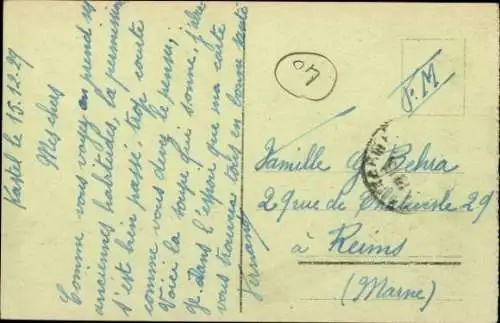 Kastel le 15.12.27
Mes chers
Comme vous voyez on prend ses
anciennes habitudes, la permission
s'est bien passé, trop courte
comme vous devez le penser,
Voici la soupe qui sonne, j'abrège
Dans l'espoir que ma carte
vous trouvera tous en bonne santé
Fernand
ON
F.M
Famille G. Behra
29 rue de 29
à Reims
(Marne)